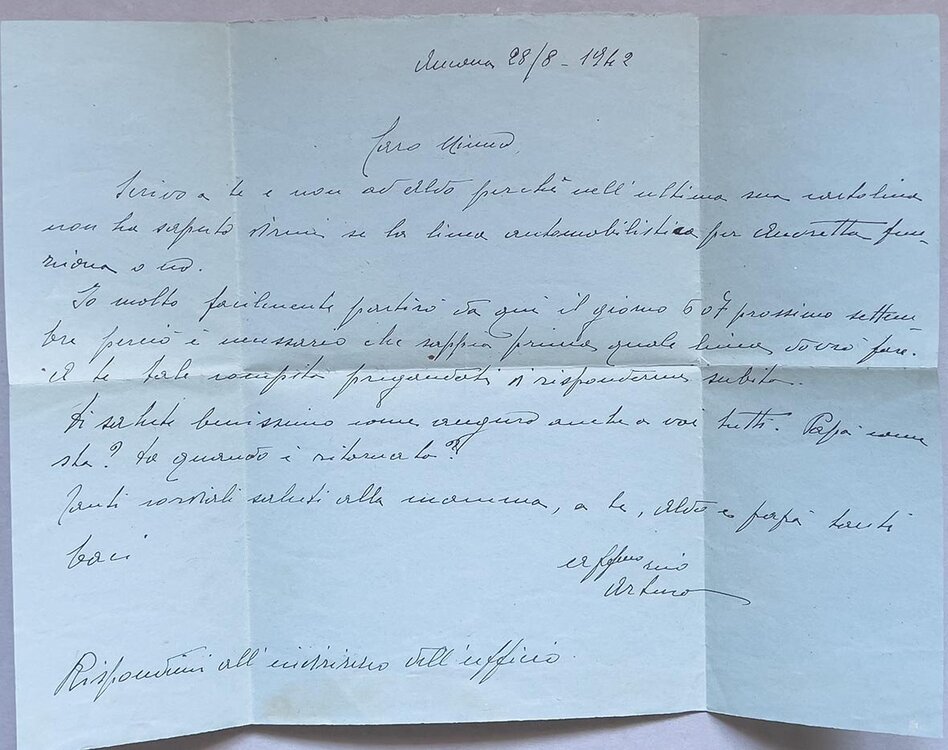 Ancona 28/8-1942
Caro Mimmo,
Scrivo a te e non ad Aldo perché nell'ultima sua cartolina
non ha saputo dirmi se la linea automobilistica per Andretta fun-
ziona o no.
Io molto facilmente partirò da qui il giorno 6 o 7 prossimo settem-
bre perciò è necessario che sappia prima quale linea dovrò fare.
A te tale compito pregandoti di rispondermi subito.
Di salute benissimo come auguro anche a voi tutti. Papà come
sta? Da quando è ritornato?
Tanti cordiali saluti alla mamma, a te, Aldo e papà tanti
baci
aff/mo zio
Arturo
Rispondimi all'indirizzo dell'ufficio